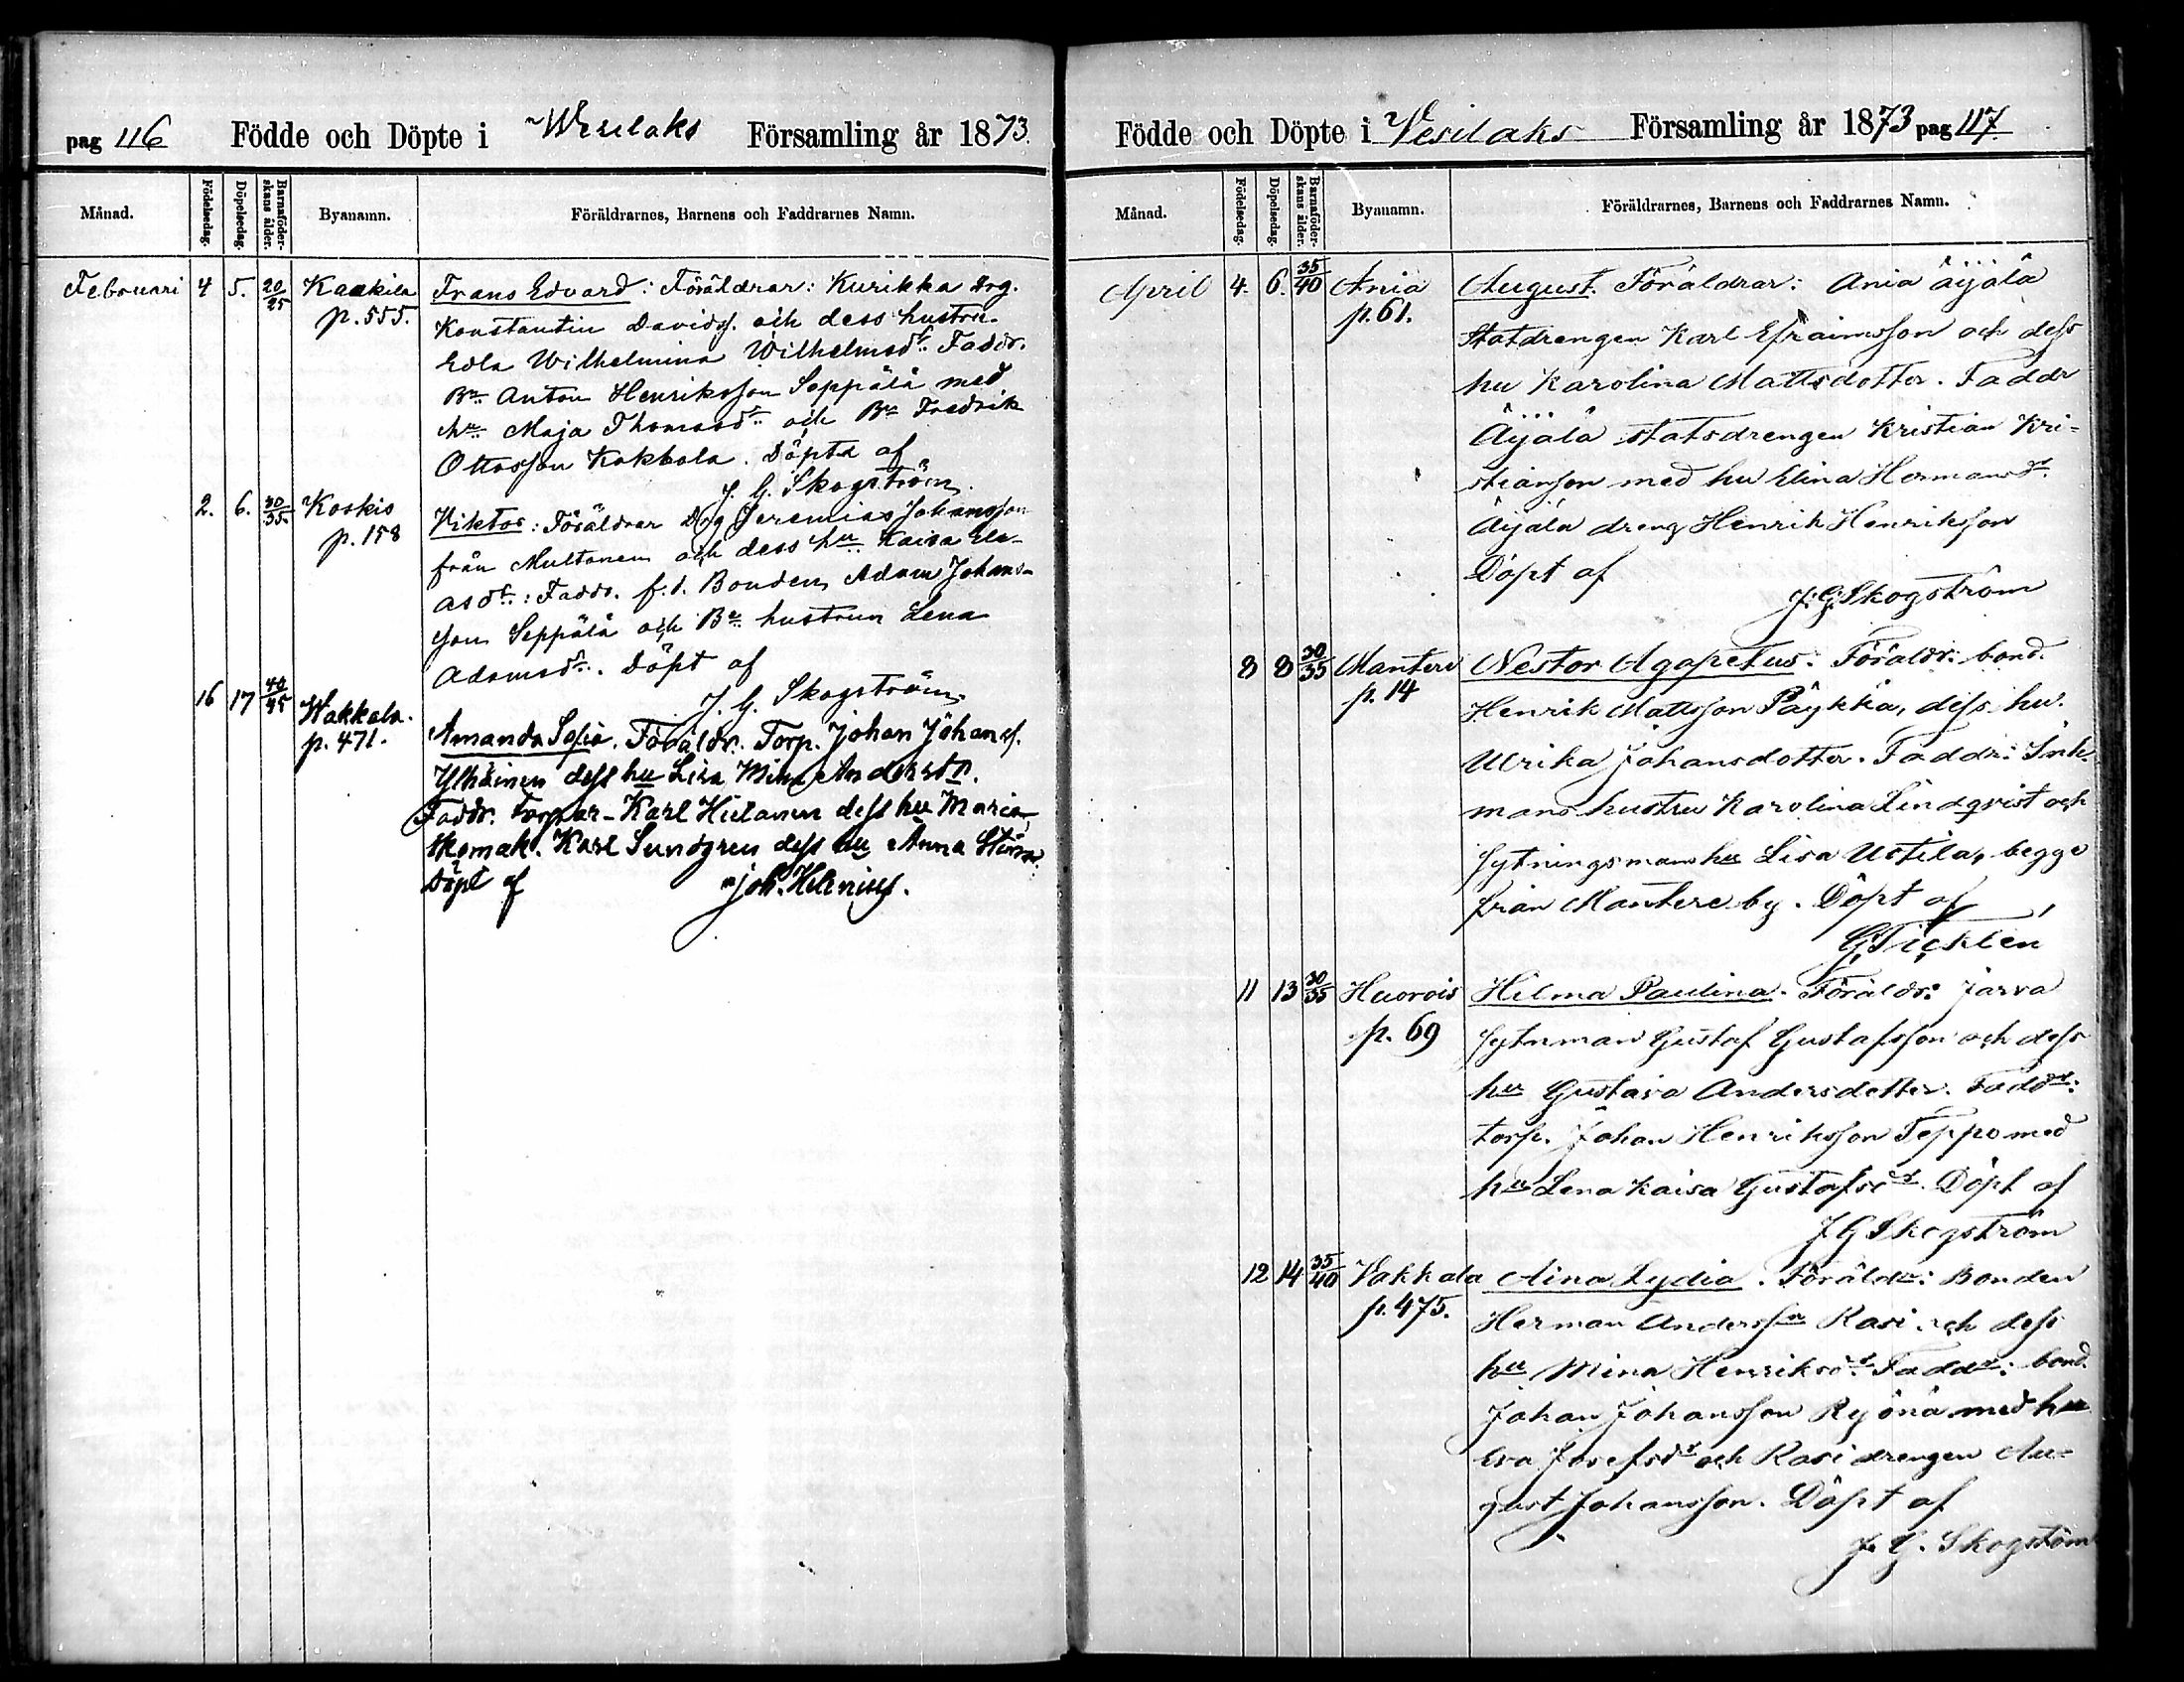 pag 116 Födde och Döpte i Wesilaks Församling år 1873.
Månad. Födelsedag. Döpelsedag. Barnaföderskans ålder. Byanamn. Föräldrarnes, Barnens och Faddrarnes Namn.
Februari 4 5. 20/25 Kaakila Frans Edvard: Föräldrar: Kurikka drg.
p. 555. Konstantin Davidss. och dess hustru
Edla Wilhelmina Wilhelmsdr. Faddr.
Bn. Anton Henriksson Seppälä med
hu. Maja Thomasdr. och Bn Fredrik
Ottosson Kokkola. Döpta af
J. G. Skogström.
2. 6. 30/35 Koskis Viktor: Föräldrar Drg Jeremias Johansson
p. 158 från Multanen och dess hu. Kaisa Eli-
asdr.: Faddr. f.d. Bonden Adam Johans-
son Seppälä och Bn. hustrun Lena
Adamsdr. Döpt af
J. G. Skogström
16 17 40/45 Wakkala. Amanda Sofia. Föräldr. Torp. Johan Johanss.
p. 471. Ylhäinen dess hu Lisa Mina Andersdr.
Faddr. Torpar. Karl Hielanen dess hu Maria,
Skomak. Karl Sundgren dess hu Anna
Döpt af Joh. Helenius.
Födde och Döpte i Vesilaks Församling år 1873 pag 117.
Månad. Födelsedag. Döpelsedag. Barnaföderskans ålder. Byanamn. Föräldrarnes, Barnens och Faddrarnes Namn.
April 4. 6. 35/40 Ania August. Föräldrar: Ania Äijälä
p. 61. Statdrengen Karl Efraimsson och dess
hu Karolina Mattsdotter. Faddr
Äijälä statsdrengen Kristian Kri-
stiansson med hu Elina Hermansdr
Äijälä dreng Henrik Henriksson
Döpt af
J. G. Skogström
8 8 30/35 Mantere Nestor Agapetus: Föräldr: bond.
p. 14 Henrik Mattsson Päykkä, dess hu.
Ulrika Johansdotter. Faddr: Inh.
mans hustru Karolina Lindqvist och
sytningsmans hu Lisa Ustila, begge
från Mantere by. Döpt af
G. Ticklén
11 13 30/35 Huorois Hilma Paulina. Föräldr: Järva
p. 69 sytnman Gustaf Gustafsson och dess
hu Gustava Andersdotter. Faddr:
torp. Johan Henriksson Teppo med
hu Lena Kaisa Gustafsdr. Döpt af
J G Skogström
12 14 35/40 Vakkala Aina Lydia. Föräldr: Bonden
p. 475. Herman Anderssn Rasi och dess
hu Mina Henriksdr. Faddr: bond.
Johan Johansson Ryönä med hu
Eva Josefsdr och Rasi drengen Au-
gust Johansson. Döpt af
J. G. Skogström